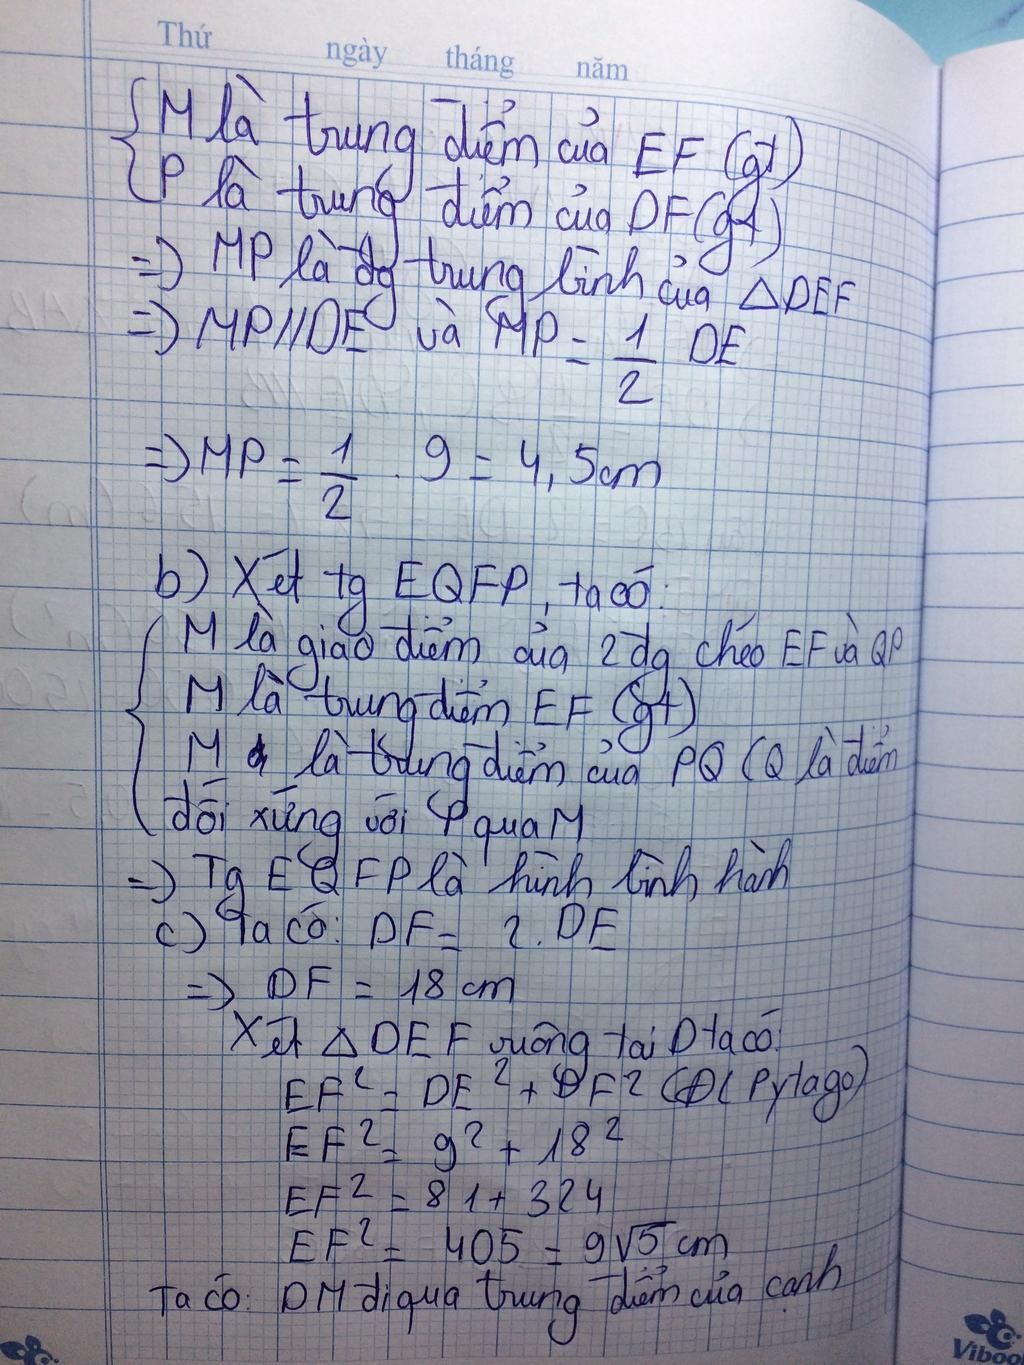 Thứ ngày tháng năm
M là trung điểm của EF (gt)
P là trung điểm của DF (gt)
=> MP là đg trung bình của △DEF
=> MP//DE và MP = 1/2 DE
=> MP = 1/2 . 9 = 4,5cm
b) Xét tg EQFP, ta có:
M là giao điểm của 2 đg chéo EF và QP
M là trung điểm EF (gt)
M là trung điểm của PQ (Q là điểm
đối xứng với P qua M
=> Tg EQFP là hình bình hành
c) Ta có: DF = 2. DE
=> DF = 18 cm
Xét △DEF vuông tại D ta có:
EF² = DE² + DF² (Đl Pytago)
EF² = 9² + 18²
EF² = 81 + 324
EF² = 405 = 9√5 cm
Ta có: DM đi qua trung điểm của cạnh
Viboo